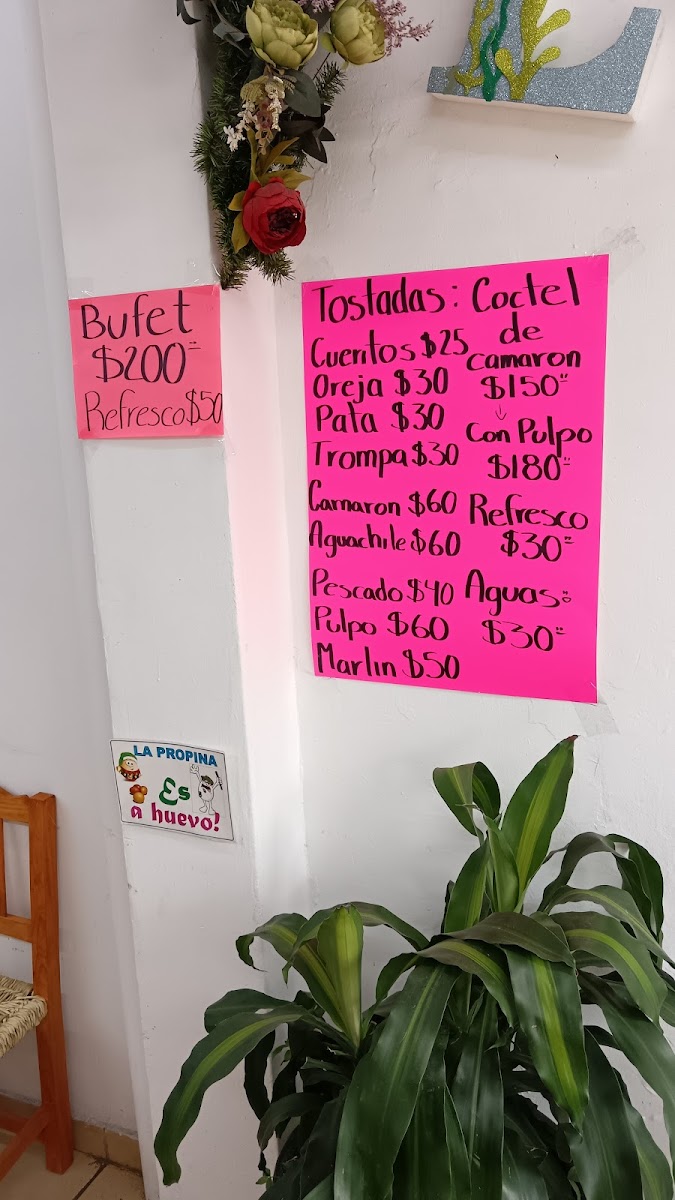 Bufet
$200
Refresco $50
Tostadas:
Cueritos $25
Oreja $30
Pata $30
Trompa $30
Camaron $60
Aguachile $60
Pescado $40
Pulpo $60
Marlin $50
Coctel
de
camaron
$150
Con Pulpo
$180
Refresco
$30
Aguas:
$30
LA PROPINA
Es
a huevo!